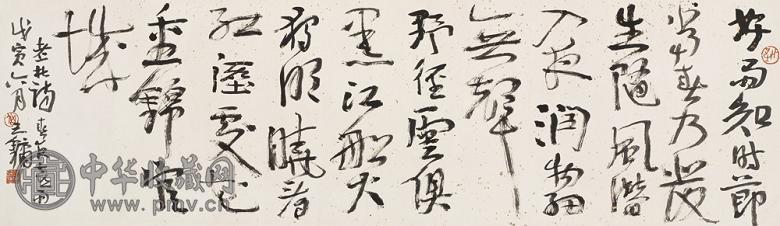 好雨知时節
當春乃發
生隨風潛
入夜润物細
無聲
野徑雲俱
黑江船火
獨明曉看
紅溼處花
重錦官
城
老杜詩春夜喜雨
戊寅六月
中华收藏网
www.pmv.cn